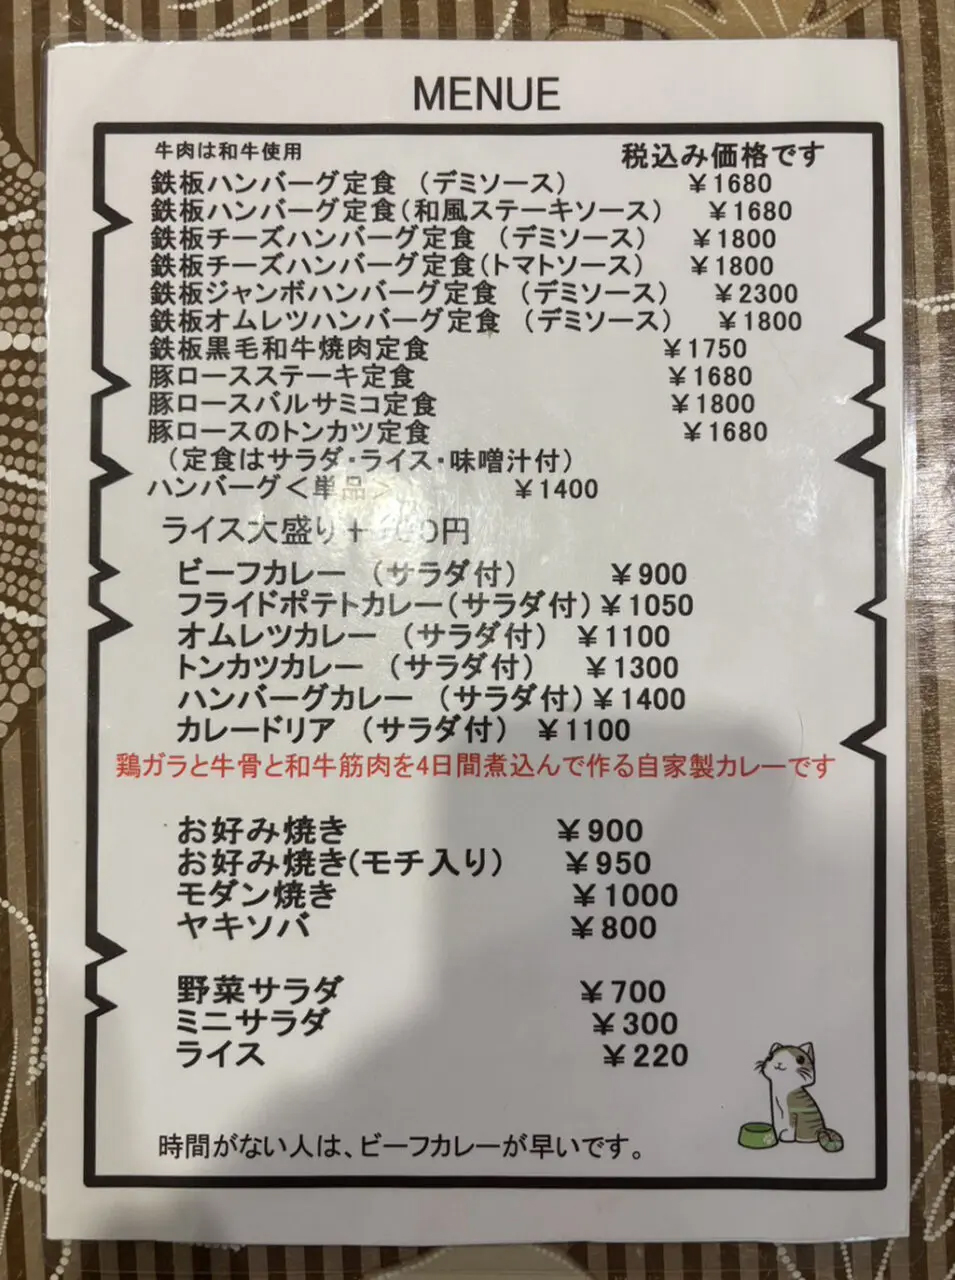 MENUE
牛肉は和牛使用
税込み価格です
鉄板ハンバーグ定食 （デミソース） ￥1680
鉄板ハンバーグ定食（和風ステーキソース） ￥1680
鉄板チーズハンバーグ定食 （デミソース） ￥1800
鉄板チーズハンバーグ定食（トマトソース） ￥1800
鉄板ジャンボハンバーグ定食 （デミソース） ￥2300
鉄板オムレツハンバーグ定食 （デミソース） ￥1800
鉄板黒毛和牛焼肉定食 ￥1750
豚ロースステーキ定食 ￥1680
豚ロースバルサミコ定食 ￥1800
豚ロースのトンカツ定食 ￥1680
（定食はサラダ・ライス・味噌汁付）
ハンバーグ＜単品＞ ￥1400
ライス大盛り＋
ビーフカレー （サラダ付） ￥900
フライドポテトカレー（サラダ付）￥1050
オムレツカレー （サラダ付） ￥1100
トンカツカレー （サラダ付） ￥1300
ハンバーグカレー （サラダ付）￥1400
カレードリア （サラダ付） ￥1100
鶏ガラと牛骨と和牛筋肉を4日間煮込んで作る自家製カレーです
お好み焼き ￥900
お好み焼き（モチ入り） ￥950
モダン焼き ￥1000
ヤキソバ ￥800
野菜サラダ ￥700
ミニサラダ ￥300
ライス ￥220
時間がない人は、ビーフカレーが早いです。